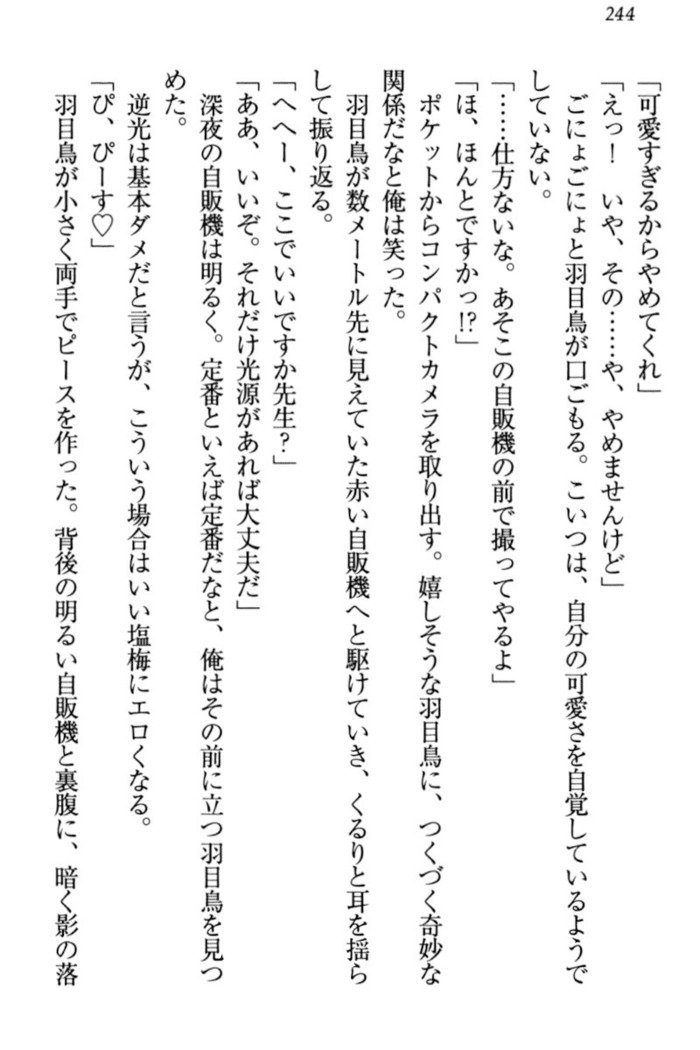 244
「可愛すぎるからやめてくれ」
「えっ！　いや、その……や、やめませんけど」
　ごにょごにょと羽目鳥が口ごもる。こいつは、自分の可愛さを自覚しているようで
していない。
「……仕方ないな。あそこの自販機の前で撮ってやるよ」
「ほ、ほんとですかっ!?」
　ポケットからコンパクトカメラを取り出す。嬉しそうな羽目鳥に、つくづく奇妙な
関係だなと俺は笑った。
　羽目鳥が数メートル先に見えていた赤い自販機へと駆けていき、くるりと耳を揺ら
して振り返る。
「へへー、ここでいいですか先生？」
「ああ、いいぞ。それだけ光源があれば大丈夫だ」
　深夜の自販機は明るく。定番といえば定番だなと、俺はその前に立つ羽目鳥を見つ
めた。
　逆光は基本ダメだと言うが、こういう場合はいい塩梅にエロくなる。
「ぴ、ぴーす♡」
　羽目鳥が小さく両手でピースを作った。背後の明るい自販機と裏腹に、暗く影の落